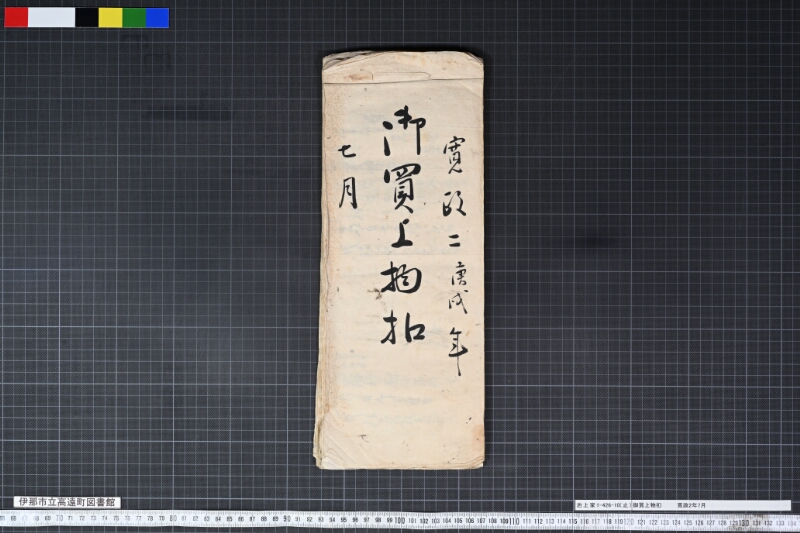 寛政二庚戌年
御買上物扣
七月
伊那市立高遠町図書館
御買上物扣 寛政2年7月